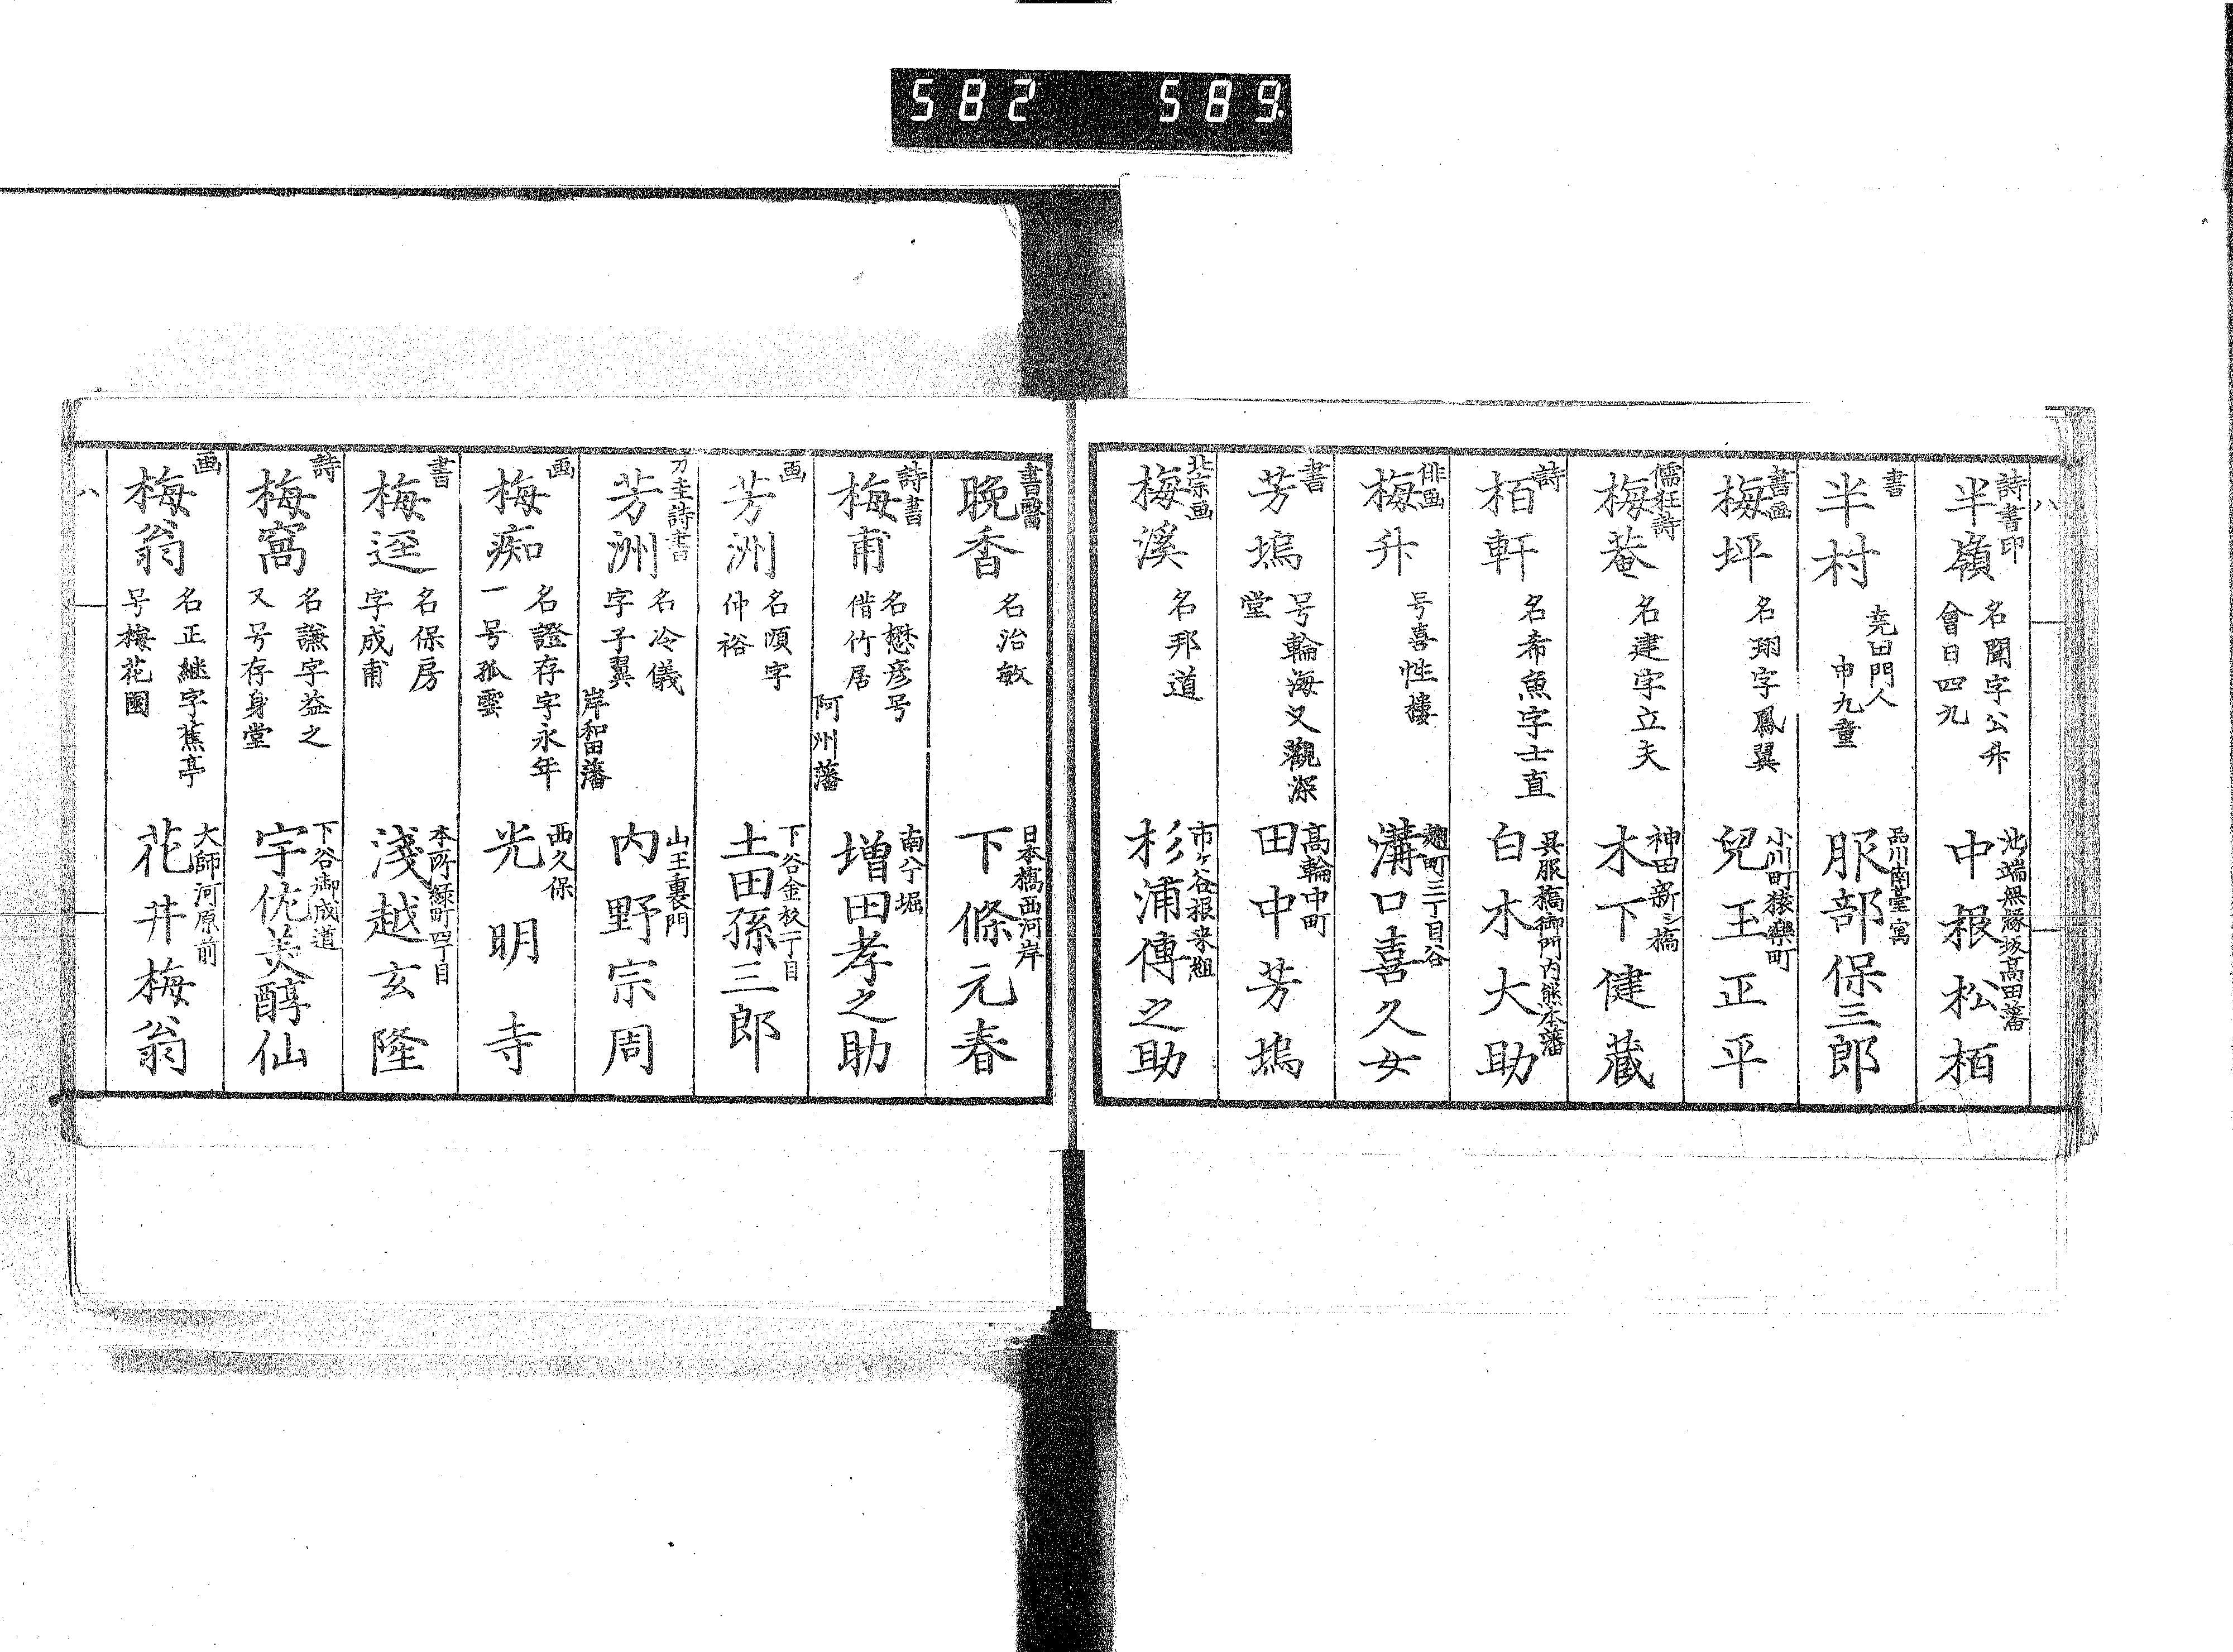 582 589
八
詩書印
半嶺
名聞字公升
會日四九
池端無縁坂高田藩
中根松栢
書
半村
堯田門人
申九童
品川南臺寓
服部保三郎
書画
梅坪
名翊字鳳翼
小川町猿樂町
兒玉正平
儒狂詩
梅菴
名建字立夫
神田新シ橋
木下健藏
詩
栢軒
名希魚字士直
呉服橋御門内熊本藩
白木大助
俳画
梅升
号喜性樓
麹町三丁目谷
溝口喜久女
書
芳塢
号輪海又觀深
堂
高輪中町
田中芳塢
北宗画
梅溪
名邦道
市ヶ谷根来組
杉浦傳之助
書醫
晩香
名治敏
日本橋西河岸
下條元春
詩書
梅甫
名懋彦号
借竹居
阿州藩
南八丁堀
増田孝之助
画
芳洲
名順字
仲裕
下谷金杉一丁目
土田孫三郎
刀圭詩書
芳洲
名冷儀
字子翼
岸和田藩
山王裏門
内野宗周
画
梅痴
名證存字永年
一号孤雲
西久保
光明寺
書
梅逕
名保房
字成甫
本所緑町四丁目
淺越玄隆
詩
梅窩
名謙字益之
又号存身堂
下谷御成道
宇佐美醇仙
画
梅翁
名正継字蕉亭
号梅花園
大師河原前
花井梅翁
八